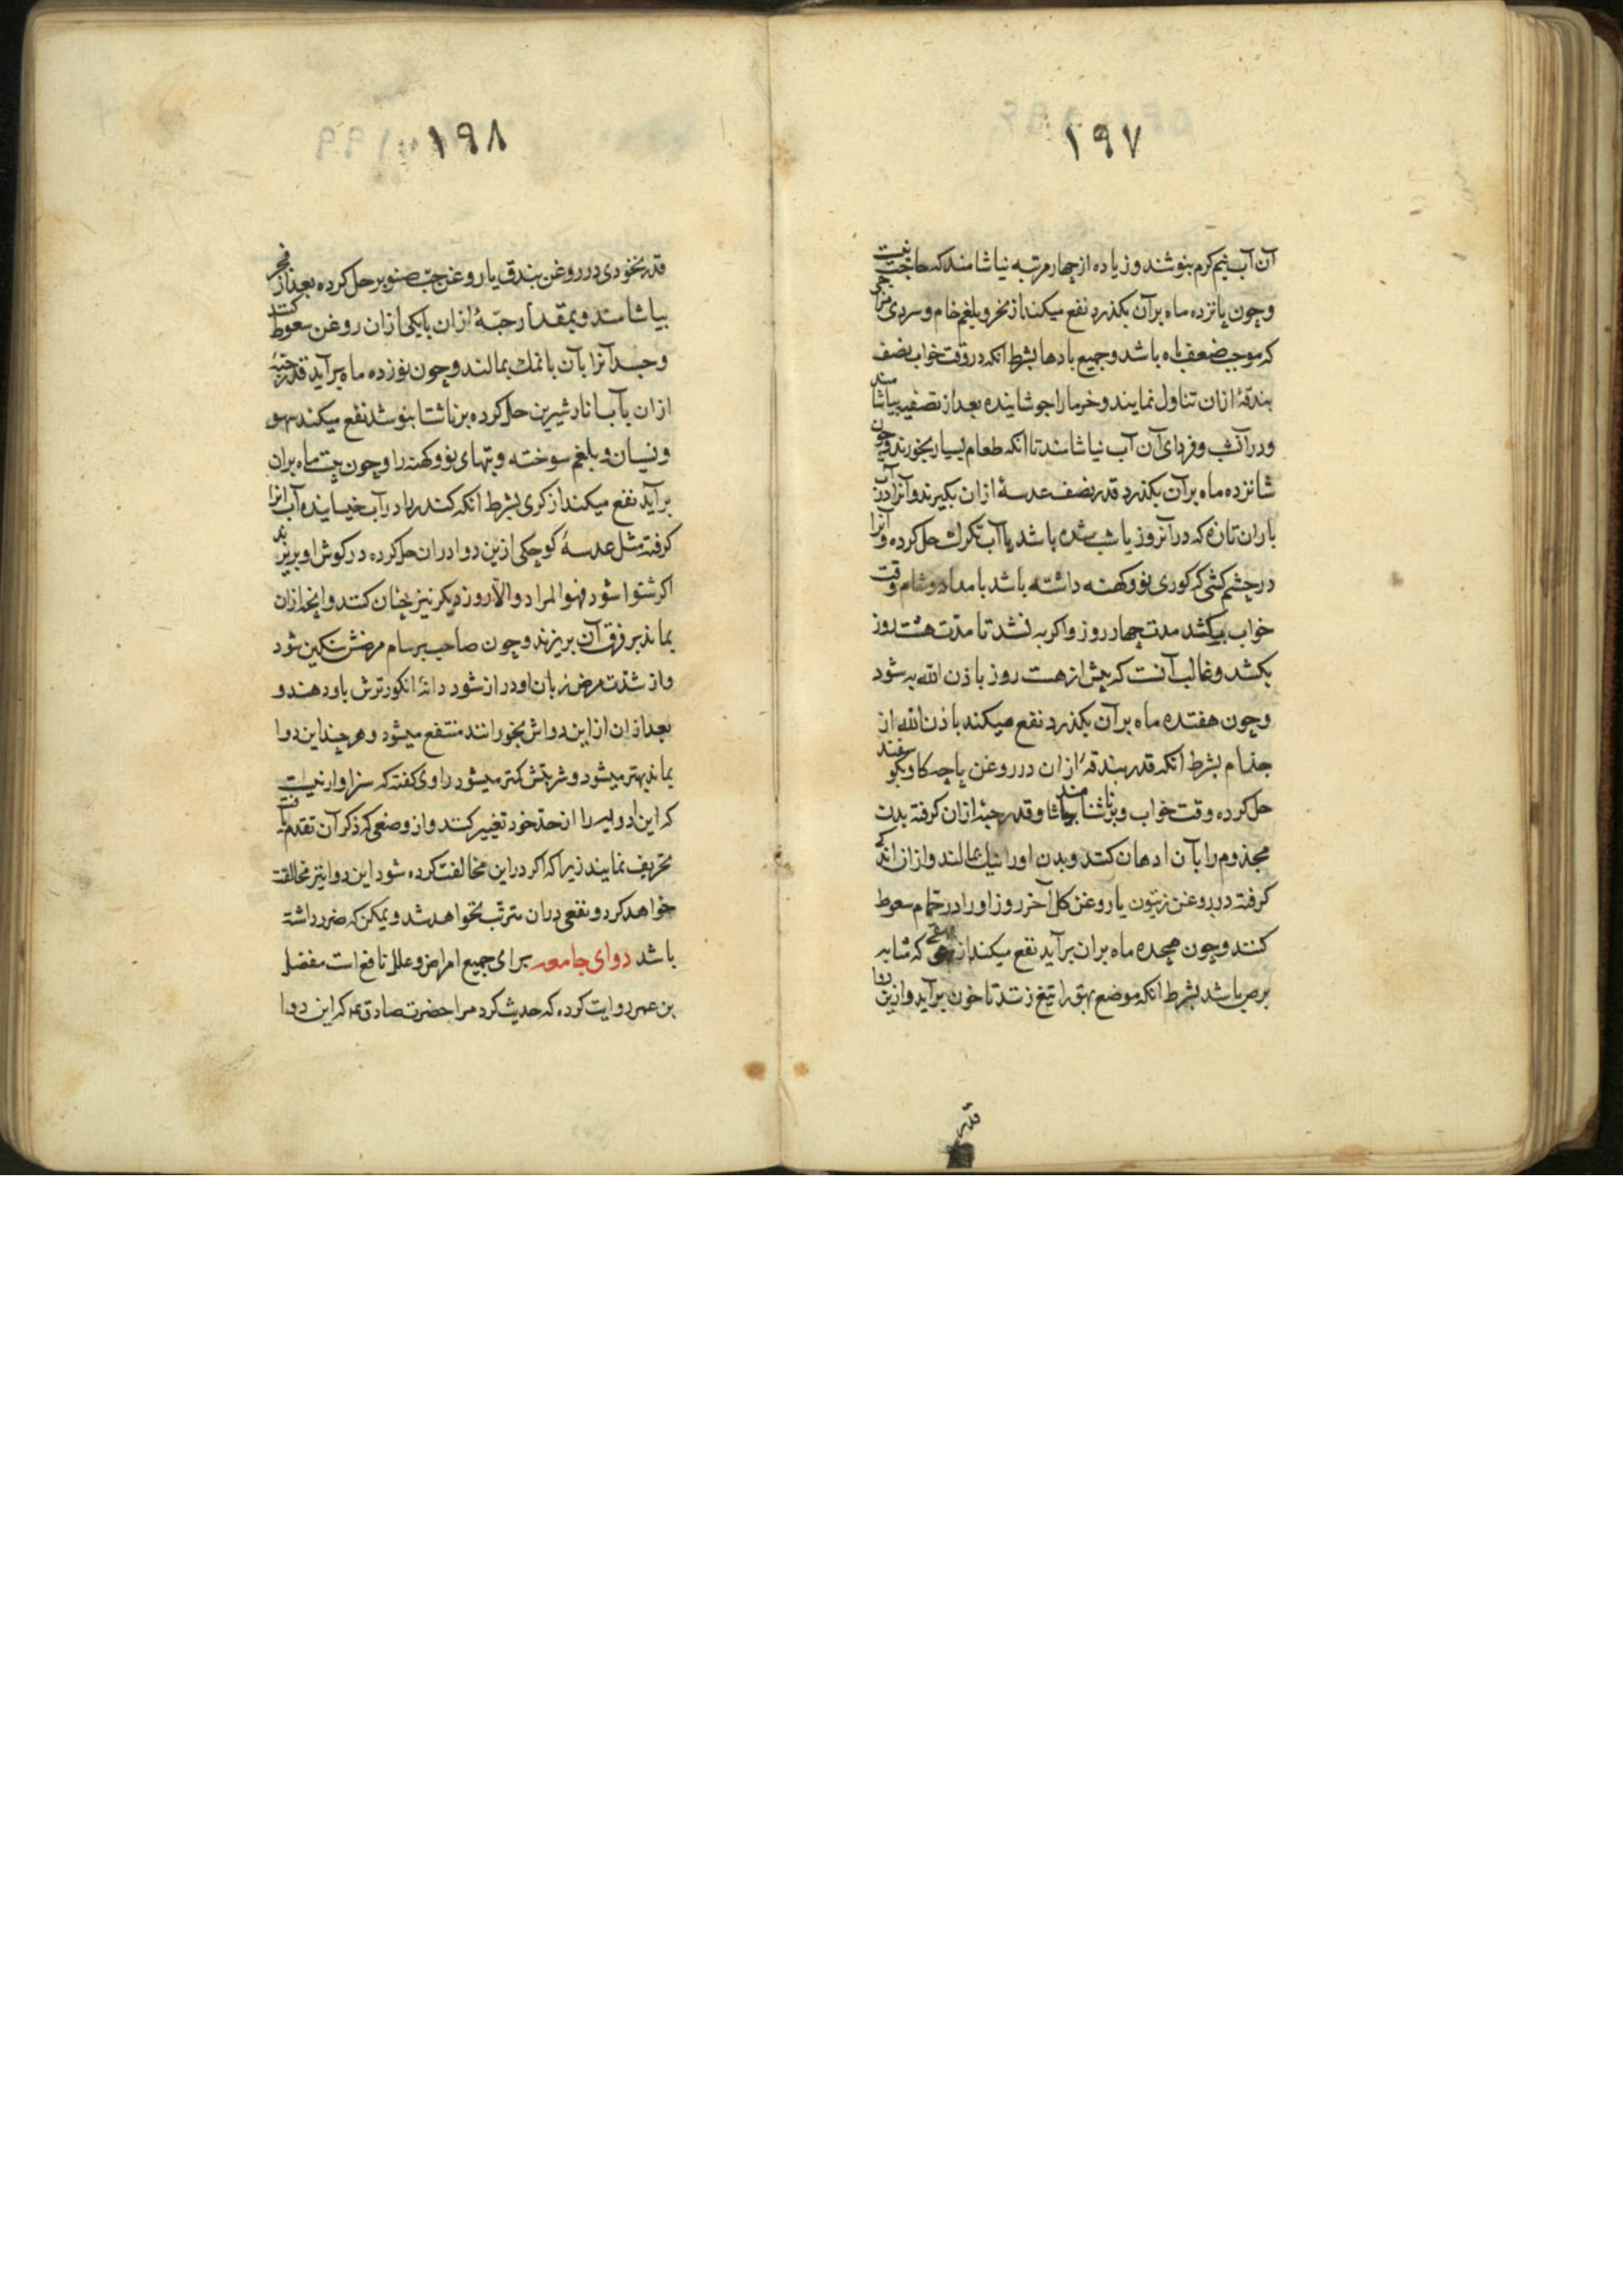 ۱۹۷
آن آب نیم کرم بنوشند و زیاده از چهار مرتبه نیاشامند که حاجت نیست
و چون پانزده ماه بر آن بکذرد نفع میکند از سحر و بلغم خام و سردی مزاجی
که موجب ضعف باه باشد و جمیع بادها بشرط انکه در وقت خواب نصف
بندقهٔ ازان تناول نمایند و خرما را جوشاینده بعد از تصفیه بیاشامند
و در آنشب و فردای آن آب نیاشامند تا انکه طعام بسیار بخورند و چون
شانزده ماه بر آن بکذرد قدر نصف عدسهٔ ازان بکیرند و آنرا در آب
باران تازه که در آنروز یا شب شده باشد یا آب تکرك حل کرده و آنرا
در چشم کسی که کوری نو و کهنه داشته باشد بامداد و شام و وقت
خواب بکشد مدت چهار روز و اکر به نشد تا مدّت هشت روز
بکشد و غالب آنست که پیش از هست روز باذن الله به شود
و چون هفتده ماه بر آن بکذرد نفع میکند باذن الله از
جذام بشرط انکه قدر بندقهٔ ازان در روغن پاچه کاو یا کوسفند
حل کرده وقت خواب و بر ناشتا بیاشامند و قدر حبهٔ ازان کرفته بدن
مجذوم را بآن ادهان کنند و بدن او را نیك بمالند و از ان اندکی
کرفته در روغن زیتون یا روغن کل آخر روز او را در حمّام سعوط
کنند و چون هیجده ماه بران برآید نفع میکند از بهقی که مشابه
برص باشد بشرط انکه موضع بهق را تیغ زنند تا خون برآید و ازین دوا
قدر
۱۹۸
قدر نخودی در روغن بندق یا روغن حبّ صنوبر حل کرده بعد از فجر
بیاشامند و بمقدار حبّهٔ ازان با یکی ازان روغن سعوط کنند
و جسد آنرا بآن با نمك بمالند و چون نوزده ماه برآید قدر حبّهٔ
ازان بآب انار شیرین حل کرده بر ناشتا بنوشد نفع میکند سهو
و نسیان و بلغم سوخته و تبهای نو و کهنه را و چون بیست ماه بران
برآید نفع میکند از کری بشرط انکه کندر را در آب خیسانیده آب انرا
کرفته مثل عدسهٔ کوچکی ازین دوا دران حل کرده در کوش او بریزند
اکر شنوا شود فهو المراد و الّا روز دیکر نیز چنان کنند و انچه ازان
بماند بر فرق آن بریزند و چون صاحب برسام مرضش سنکین شود
و از شدّت مرض زبان او دراز شود دانهٔ انکور ترش باو دهند و
بعد ازان از این دواش بخورانند منتفع میشود و هر چند این دوا
بماند بهتر میشود و شربتش کمتر میشود راوی کفته که سزاوار نیست
که این ادویه را از حدّ خود تغییر کنند و از وضعی که ذکر آن تقدم یافته
تحریف نمایند زیرا که اکر در این مخالفت کرده شود این دوا نیز مخالفت
خواهد کرد و نفعی دران مترتّب نخواهد شد و یمکن که ضرر داشته
باشد دوای جامعه برای جمیع امراض و علل نافع است مفضل
بن عمر روایت کرده که حدیث کرد مرا حضرت صادق ع که این دوا